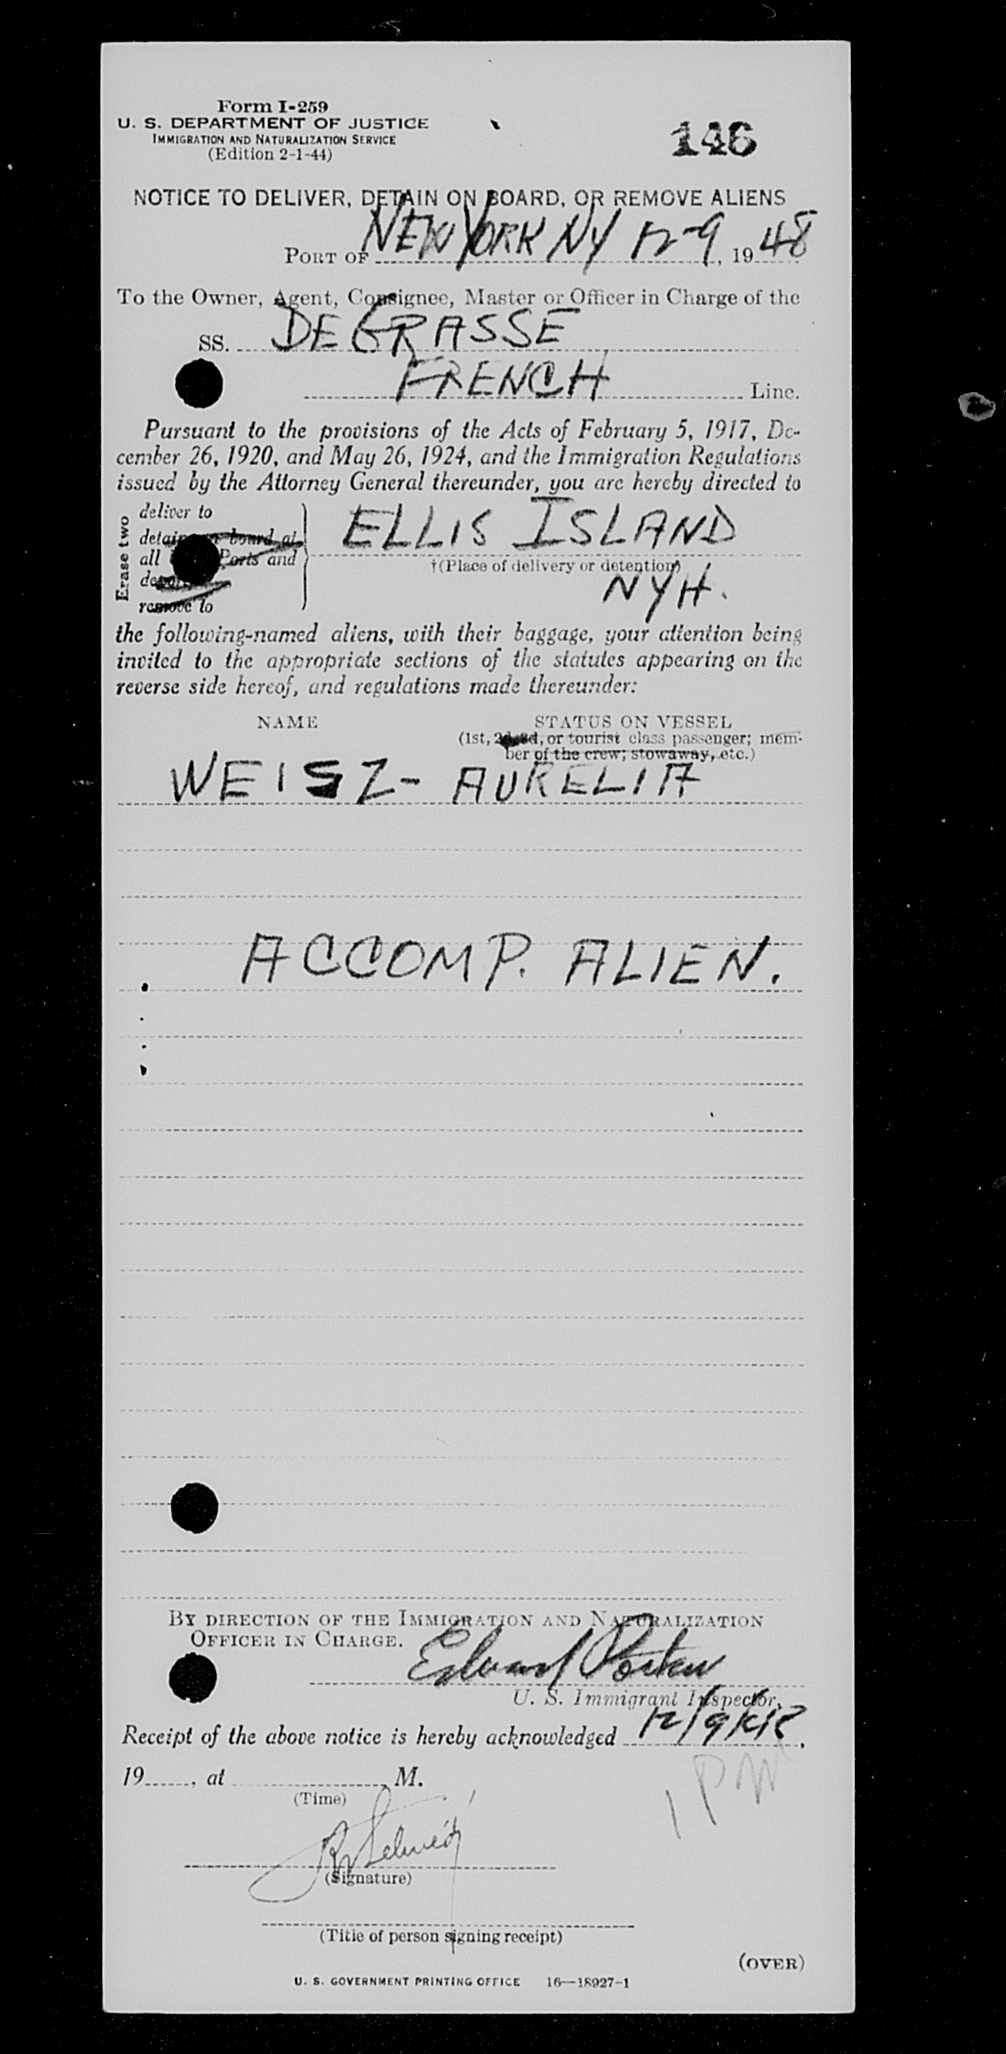 Form I-259
U. S. DEPARTMENT OF JUSTICE
IMMIGRATION AND NATURALIZATION SERVICE
(Edition 2-1-44)
146
NOTICE TO DELIVER, DETAIN ON BOARD, OR REMOVE ALIENS
PORT OF NEW YORK NY 12-9, 1948
To the Owner, Agent, Consignee, Master or Officer in Charge of the
SS. DE GRASSE
FRENCH Line.
Pursuant to the provisions of the Acts of February 5, 1917, De-
cember 26, 1920, and May 26, 1924, and the Immigration Regulations
issued by the Attorney General thereunder, you are hereby directed to
Erase two
deliver to
detain on board at
all Ports and
remove to
ELLIS ISLAND
†(Place of delivery or detention)
NYH.
the following-named aliens, with their baggage, your attention being
invited to the appropriate sections of the statutes appearing on the
reverse side hereof, and regulations made thereunder:
NAME STATUS ON VESSEL
(1st, 2d, 3d, or tourist class passenger; mem-
ber of the crew; stowaway, etc.)
WEISZ- AURELIA
ACCOMP. ALIEN.
BY DIRECTION OF THE IMMIGRATION AND NATURALIZATION
OFFICER IN CHARGE.
Edward
U. S. Immigrant Inspector.
Receipt of the above notice is hereby acknowledged 12/9/48,
19......, at M.
1 PM
(Time)
(Signature)
(Title of person signing receipt)
(OVER)
U. S. GOVERNMENT PRINTING OFFICE 16—18927-1